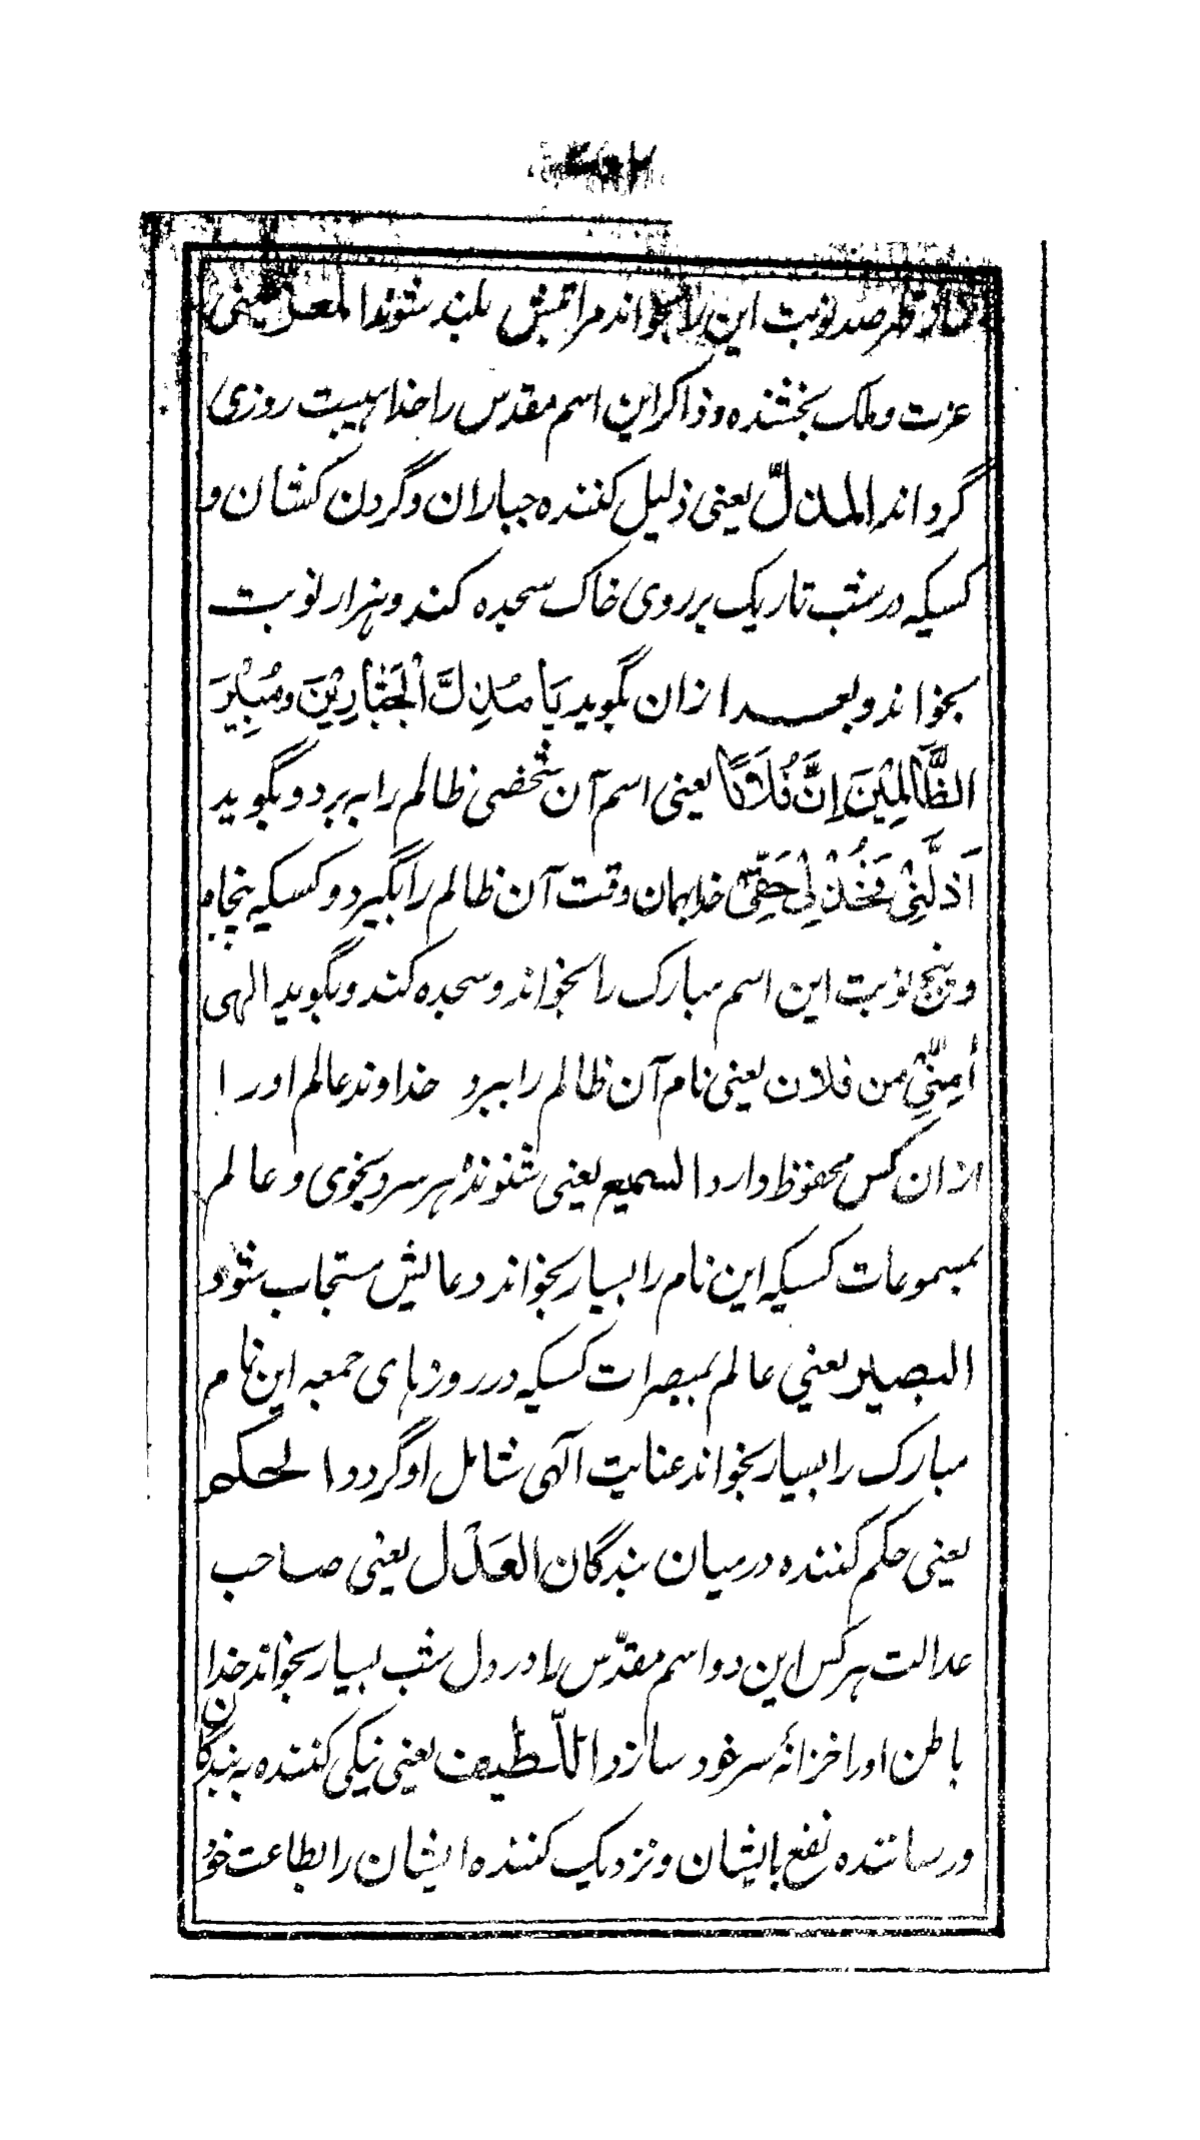 صد نوبت این را بخواند مراتبش بلند شوند المعز یعنی
عزت و ملک بخشنده و ذاکر این اسم مقدس را خدا هیبت روزی
گرداند المذلّ یعنی ذلیل کننده جباران و گردن کشان و
کسیکه در شب تاریک بر روی خاک سجده کند و هزار نوبت
بخواند و بعد ازان بگوید یَا مُذِلَّ الْجَبَّارِیْنَ و مُبِیْرَ
الظَّالِمِیْنَ اِنَّ فُلَانًا یعنی اسم آن شخصی ظالم را ببرد و بگوید
اَذَلَّنِیْ فَخُذْ لِیْ حَقِّیْ خدا بهمان وقت آن ظالم را بگیرد و کسیکه پنجاه
و پنج نوبت این اسم مبارک را بخواند و سجده کند و بگوید الهی
اٰمِنِّیْ من فلان یعنی نام آن ظالم را ببرد خداوند عالم او را
ازان کس محفوظ دارد السمیع یعنی شنوندهٔ هر سر و نجوی و عالم
بمسموعات کسیکه این نام را بسیار بخواند دعایش مستجاب شود
البصیر یعنی عالم بمبصرات کسیکه در روزهای جمعه این نام
مبارک را بسیار بخواند عنایت آلهی شامل او گردد الحکم
یعنی حکم کننده درمیان بندگان العَدْل یعنی صاحب
عدالت هر کس این دو اسم مقدّس را در دل شب بسیار بخواند خدا
باطن او را خزانهٔ سر خود سازد اللّطیف یعنی نیکی کننده به بندگان
و رساننده نفع بایشان و نزدیک کننده ایشان را بطاعت خود